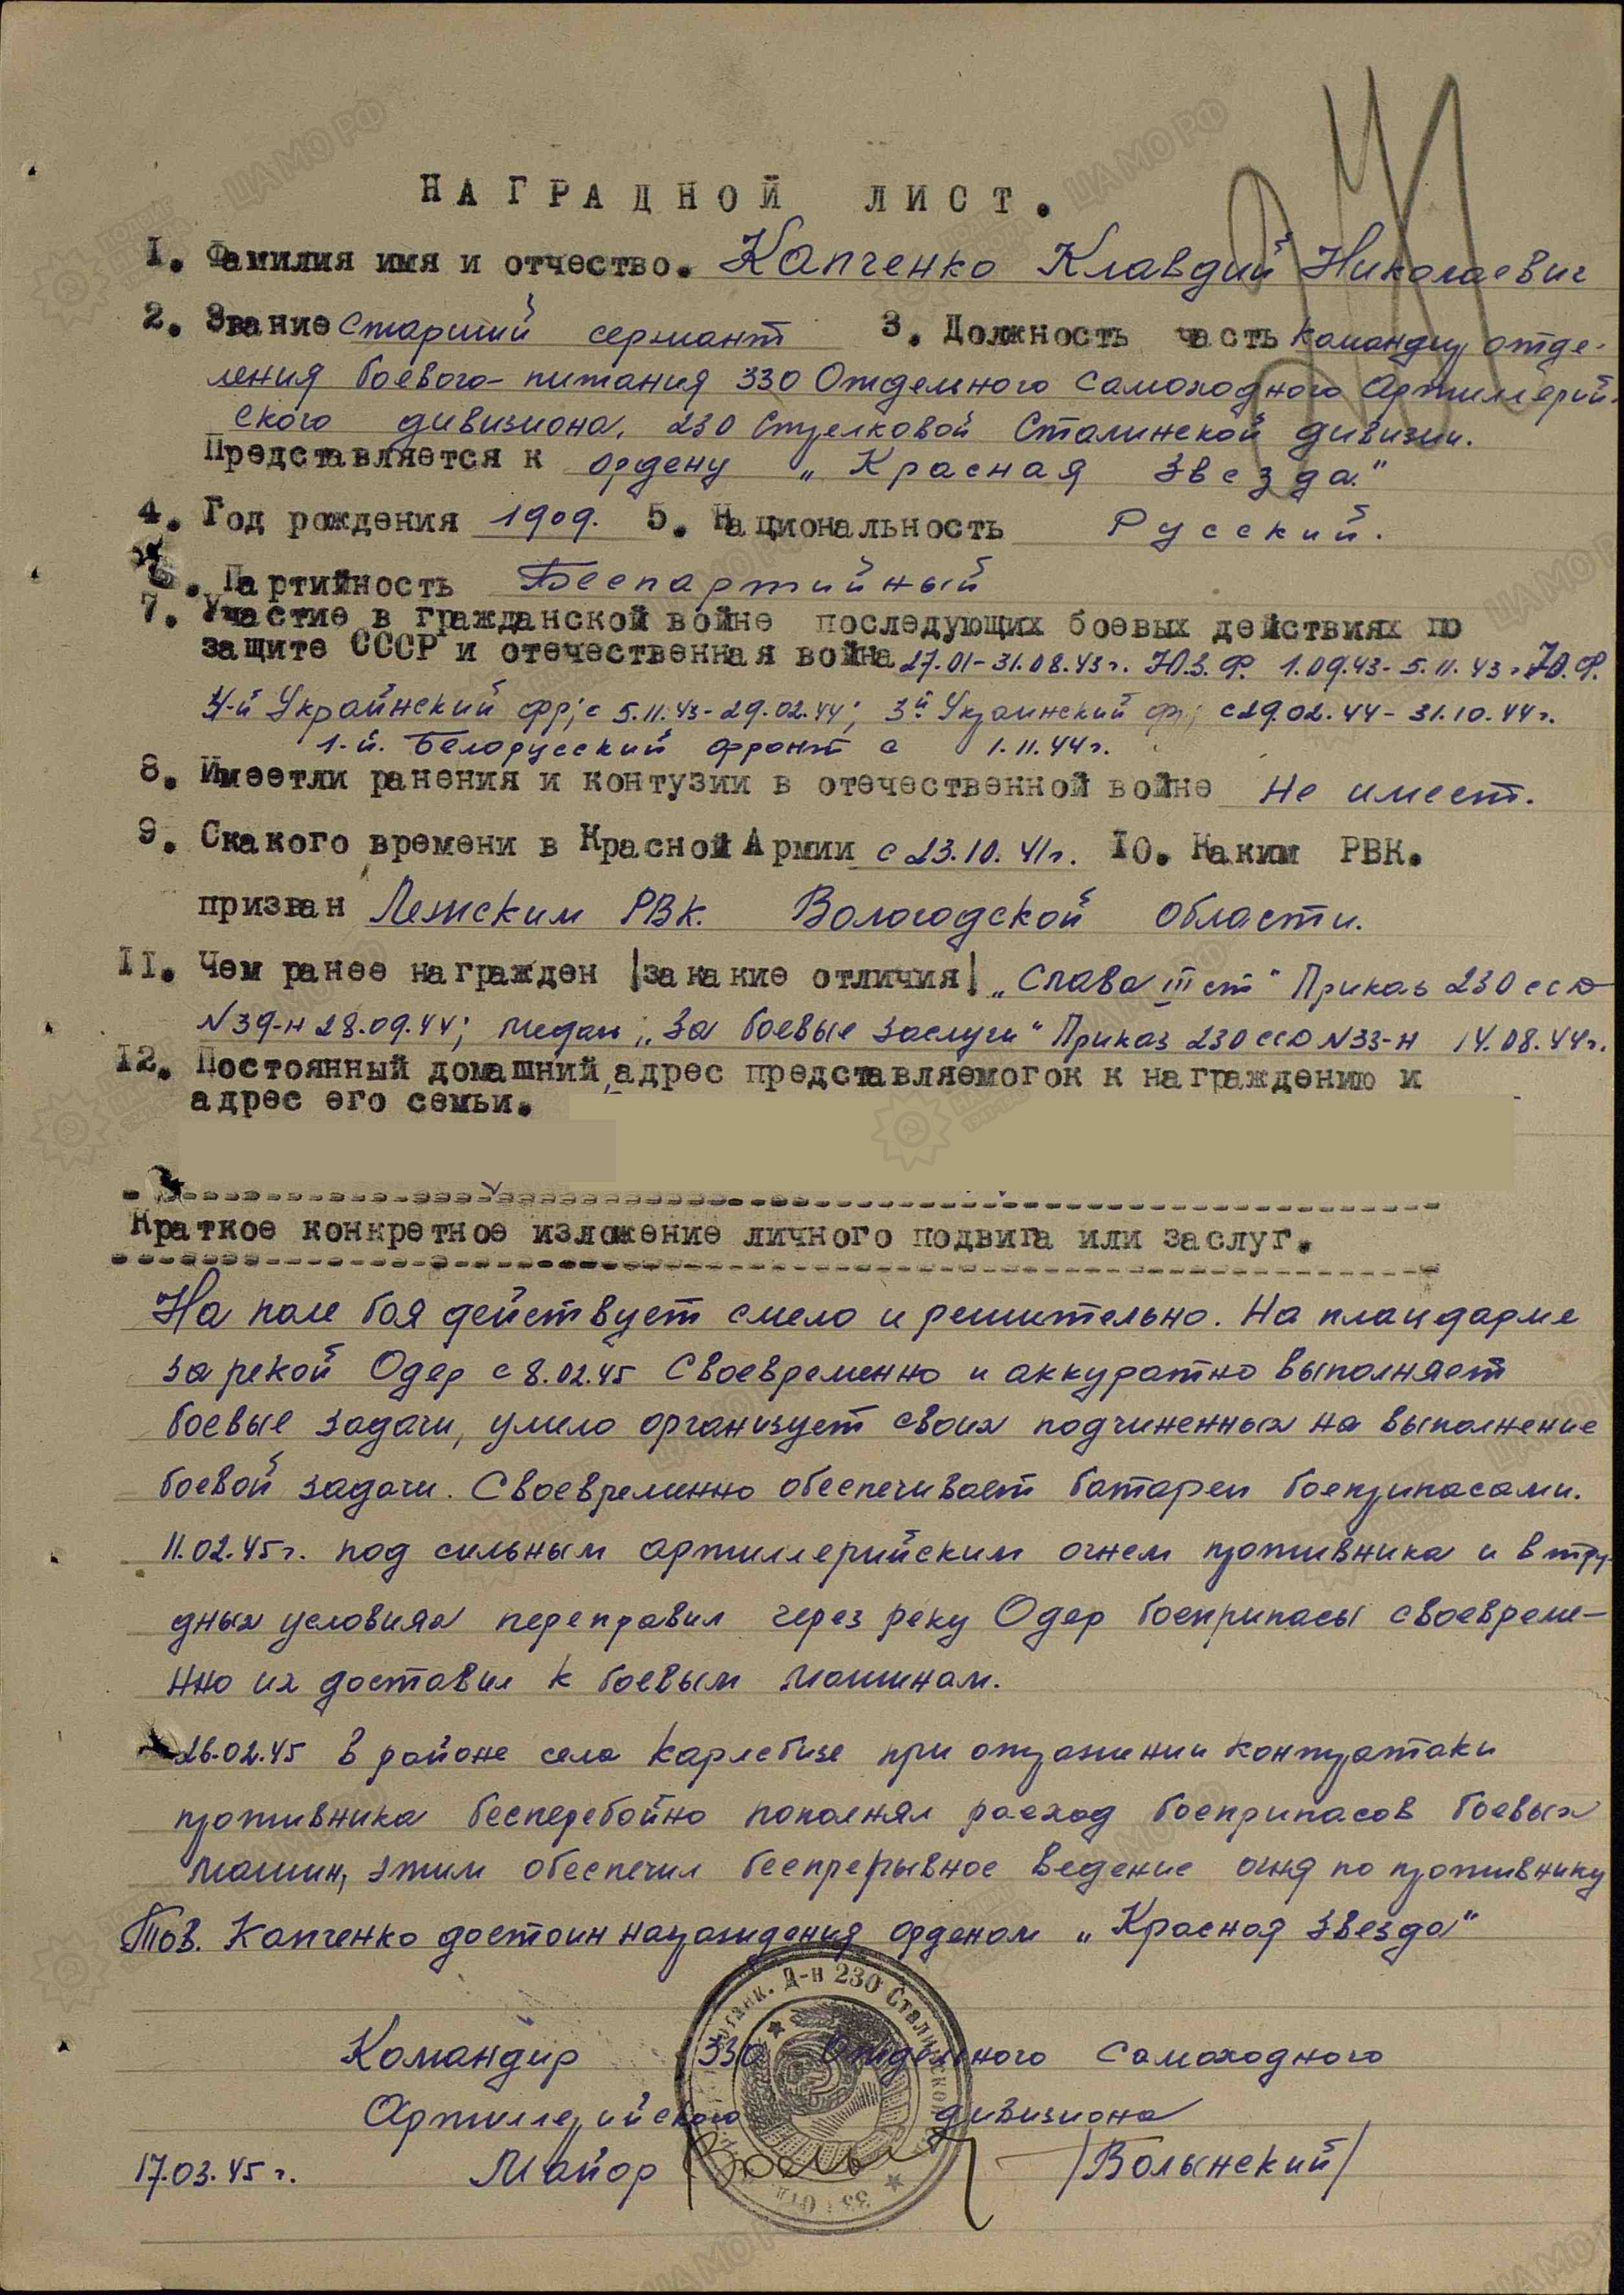 НАГРАДНОЙ ЛИСТ.
1. Фамилия имя и отчество. Капченко Клавдий Николаевич
2. Звание старший сержант 3. Должность часть командир отде-
ления боевого питания 330 Отдельного Самоходного Артиллерий-
ского дивизиона, 230 Стрелковой Сталинской дивизии.
Представляется к ордену „Красная Звезда"
4. Год рождения 1909. 5. Национальность Русский.
6. Партийность Беспартийный
7. Участие в гражданской войне последующих боевых действиях по
защите СССР и отечественная война 27.01-31.08.43г. Ю.З.Ф. 1.09.43-5.11.43г Ю.Ф.
4-й Украинский фр; с 5.11.43-29.02.44; 3й Украинский фр; с 29.02.44-31.10.44г.
1-й. Белорусский фронт с 1.11.44г.
8. Имеетли ранения и контузии в отечественной войне Не имеет.
9. Скакого времени в Красной Армии с 23.10.41г. 10. Каким РВК.
призван Лежским РВК. Вологодской области.
11. Чем ранее награжден |за какие отличия| „Слава III ст" Приказ 230 ссд
N39-н 28.09.44; медаль „За боевые заслуги" Приказ 230 ссд N33-н 14.08.44г.
12. Постоянный домашний адрес представляемогок к награждению и
адрес его семьи.
Краткое конкретное изложение личного подвига или заслуг.
На поле боя действует смело и решительно. На плацдарме
за рекой Одер с 8.02.45 Своевременно и аккуратно выполняет
боевые задачи, умело организует своих подчиненных на выполнение
боевой задачи. Своевременно обеспечивает батареи боеприпасами.
11.02.45г. под сильным артиллерийским огнем противника и в тру-
дных условиях переправил через реку Одер боеприпасы своевреме-
нно их доставил к боевым машинам.
26.02.45 в районе села Карлебизе при отражении контратаки
противника бесперебойно пополнял расход боеприпасов боевых
машин, этим обеспечил беспрерывное ведение огня по противнику
Тов. Капченко достоин награждения орденом „Красная Звезда"
Командир 330 Отдельного Самоходного
Артиллерийского дивизиона
17.03.45г. Майор /Волынский/
Д-н 230 Сталинской
ЦАМО РФ